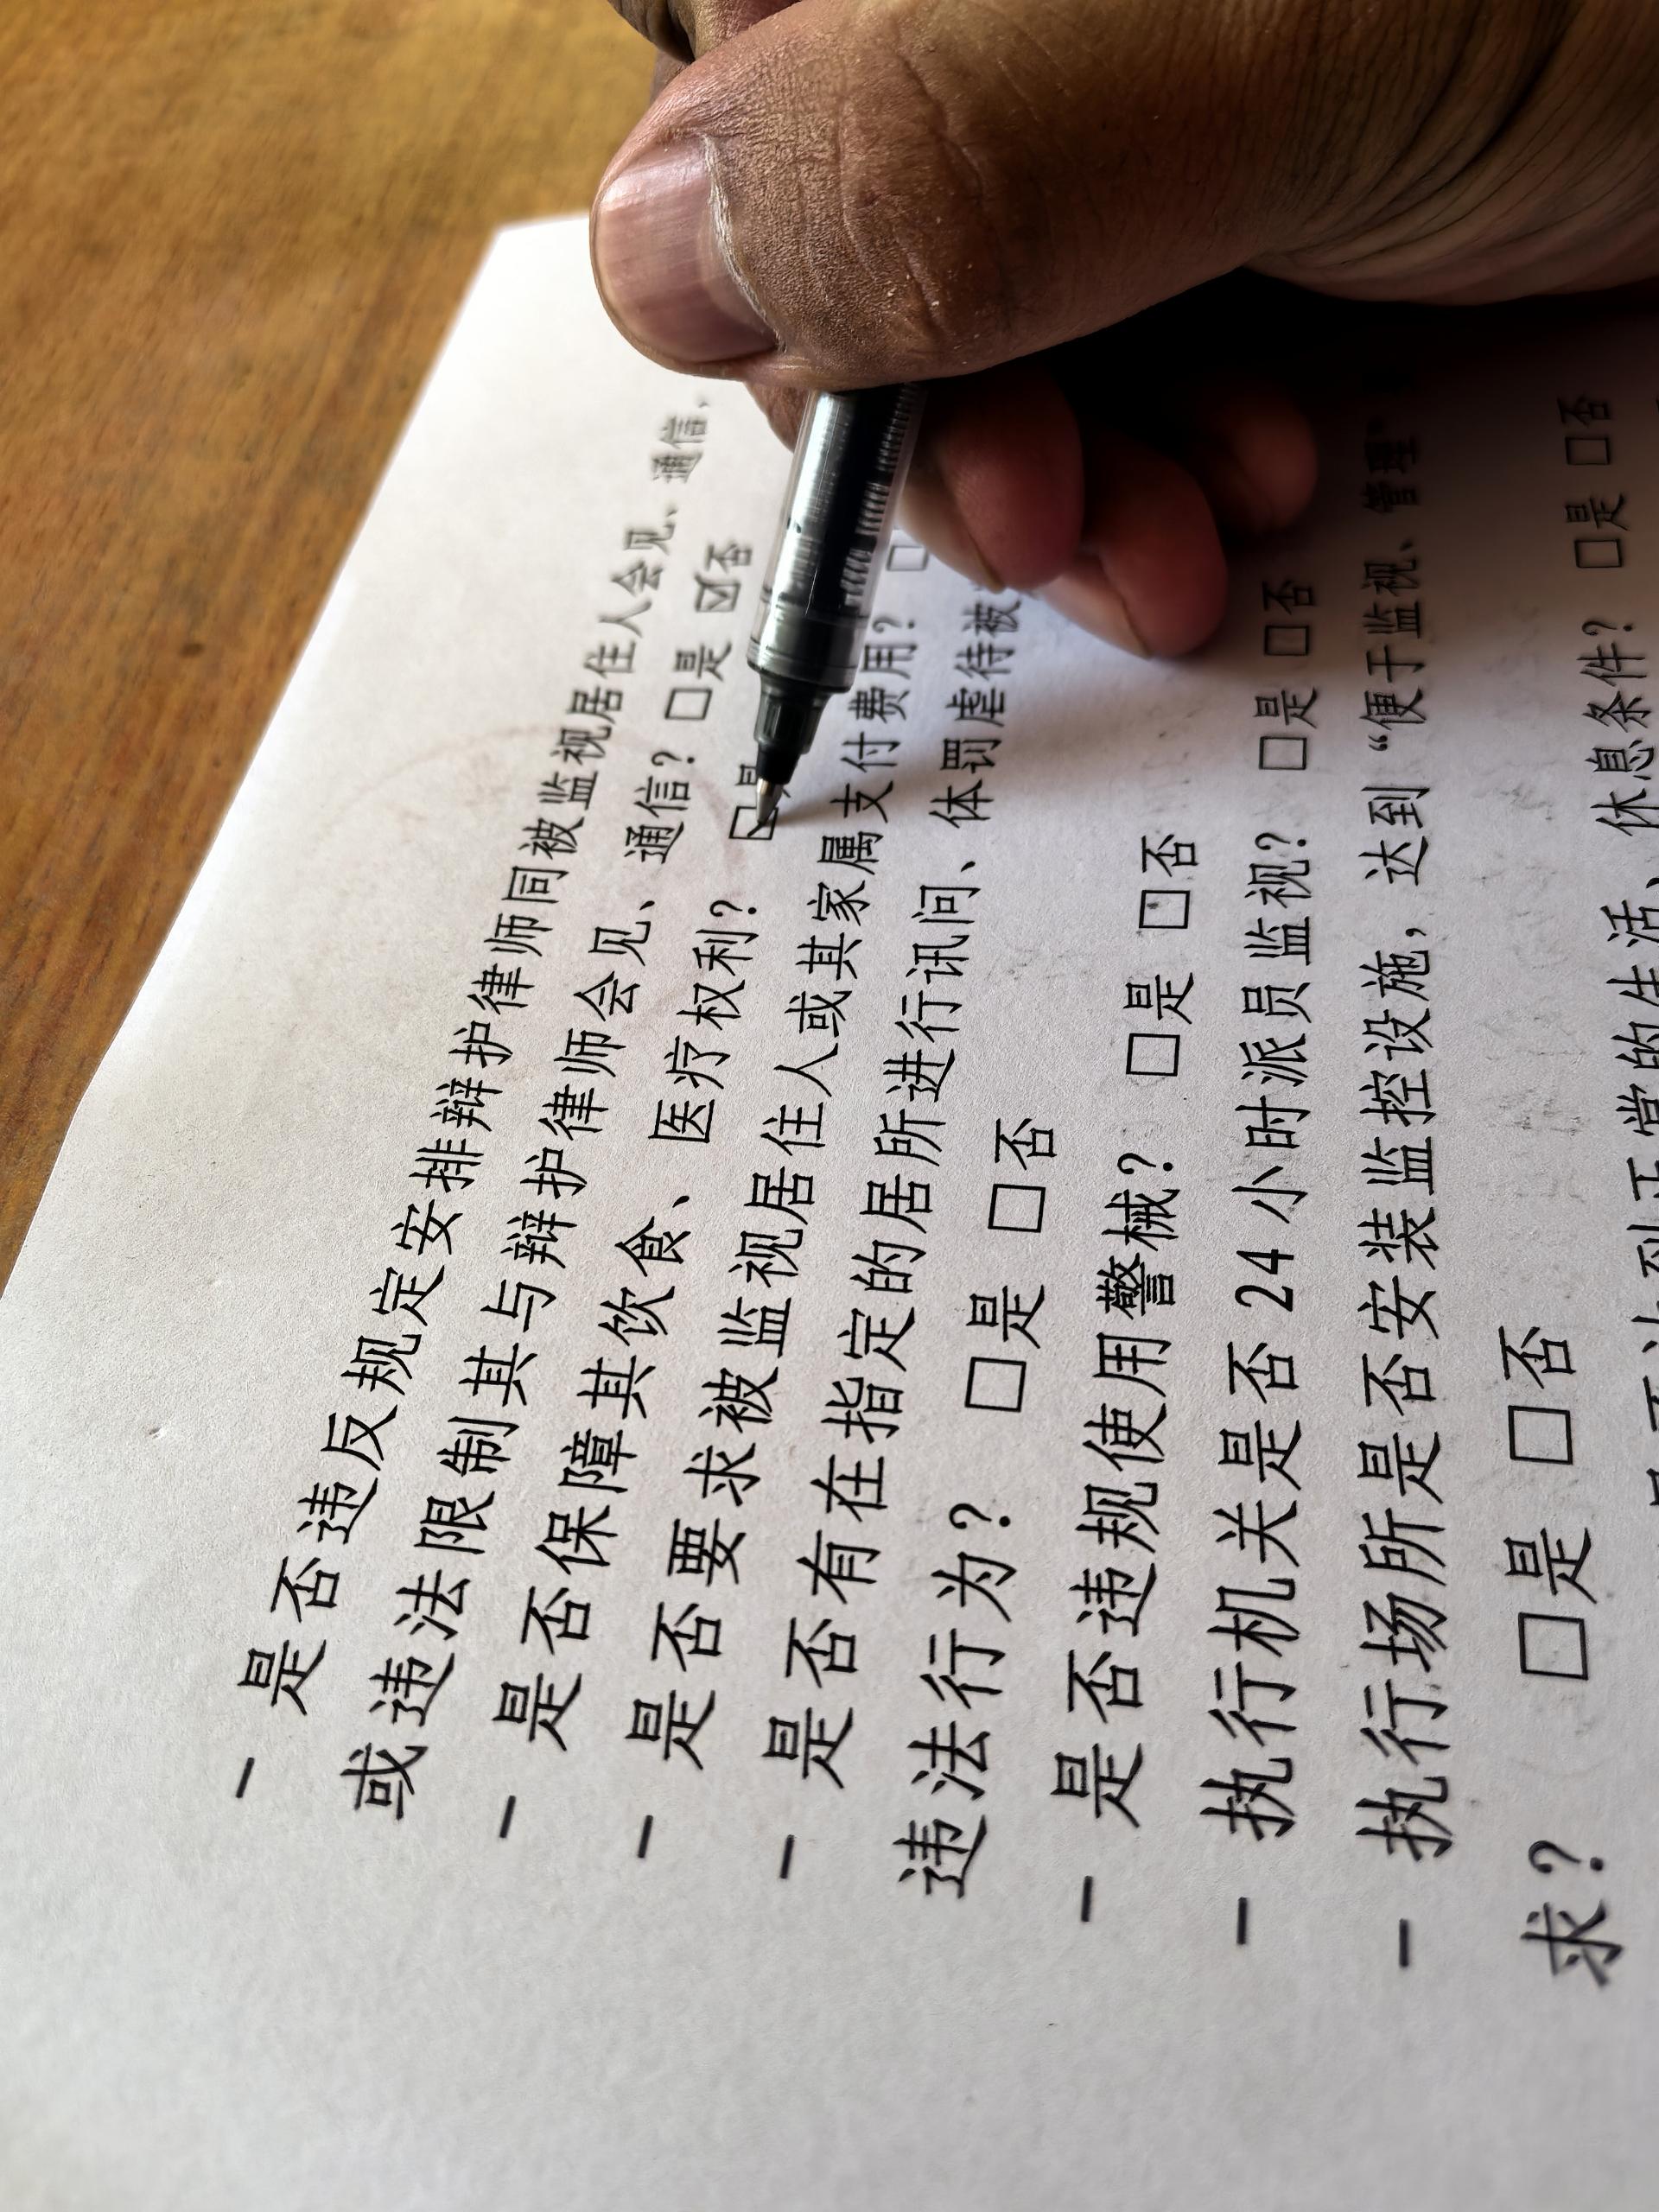 - 是否违反规定安排辩护律师同被监视居住人会见、通信，
或违法限制其与辩护律师会见、通信？ □是 ☑否
- 是否保障其饮食、医疗权利？ □是
- 是否要求被监视居住人或其家属支付费用？ □
- 是否有在指定的居所进行讯问、体罚虐待被
违法行为？ □是 □否
- 是否违规使用警械？ □是 □否
- 执行机关是否 24 小时派员监视？ □是 □否
- 执行场所是否安装监控设施，达到“便于监视、管理”
求？ □是 □否
到正常的生活、休息条件？ □是 □否